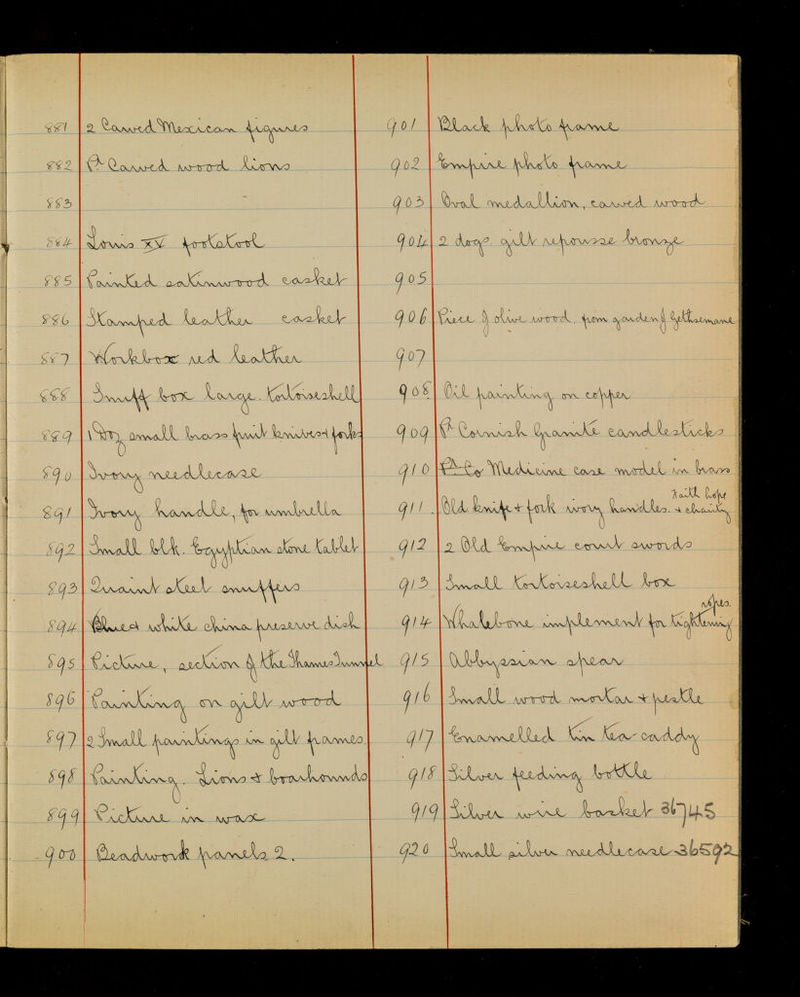 881 2 Carved Mexican figures
882 Pr Carved wood lions
883
884 Louis XV footstool
885 Painted satinwood casket
886 Stamped leather casket
887 Workbox red leather
888 Snuff box large. tortoiseshell
889 1 Doz small brass fruit knives & forks
890 Ivory needlecase
891 Ivory handle, for umbrella
892 Small blk. Egyptian stone tablet
893 Quaint steel snuffers
894 Blue & white china preserve dish
895 Picture, section of the Thames Tunnel
896 Painting on gilt wood
897 2 Small paintings in gilt frames
898 Painting. Lions & boarhounds
899 Picture in wax
900 Beadwork panels 2.
901 Black photo frame
902 Empire photo frame
903 Oval medallion, carved wood
904 2 dogs. gilt repousse bronze
905
906 Piece of olive wood. from garden of Gethsemane
907
908 Oil painting on copper
909 Pr Cornish Granite candlesticks
910 Medicine case model in brass
911 Old knife & fork ivory handles. Faith hope & charity
912 2 Old Empire court swords
913 Small tortoiseshell box
914 Whalebone implement for tightening ropes.
915 Abbyssian spear
916 Small wood mortar & pestle
917 Enamelled tin tea-caddy
918 Silver feeding bottle
919 Silver wire basket 36745
920 Small silver needlecase 36592